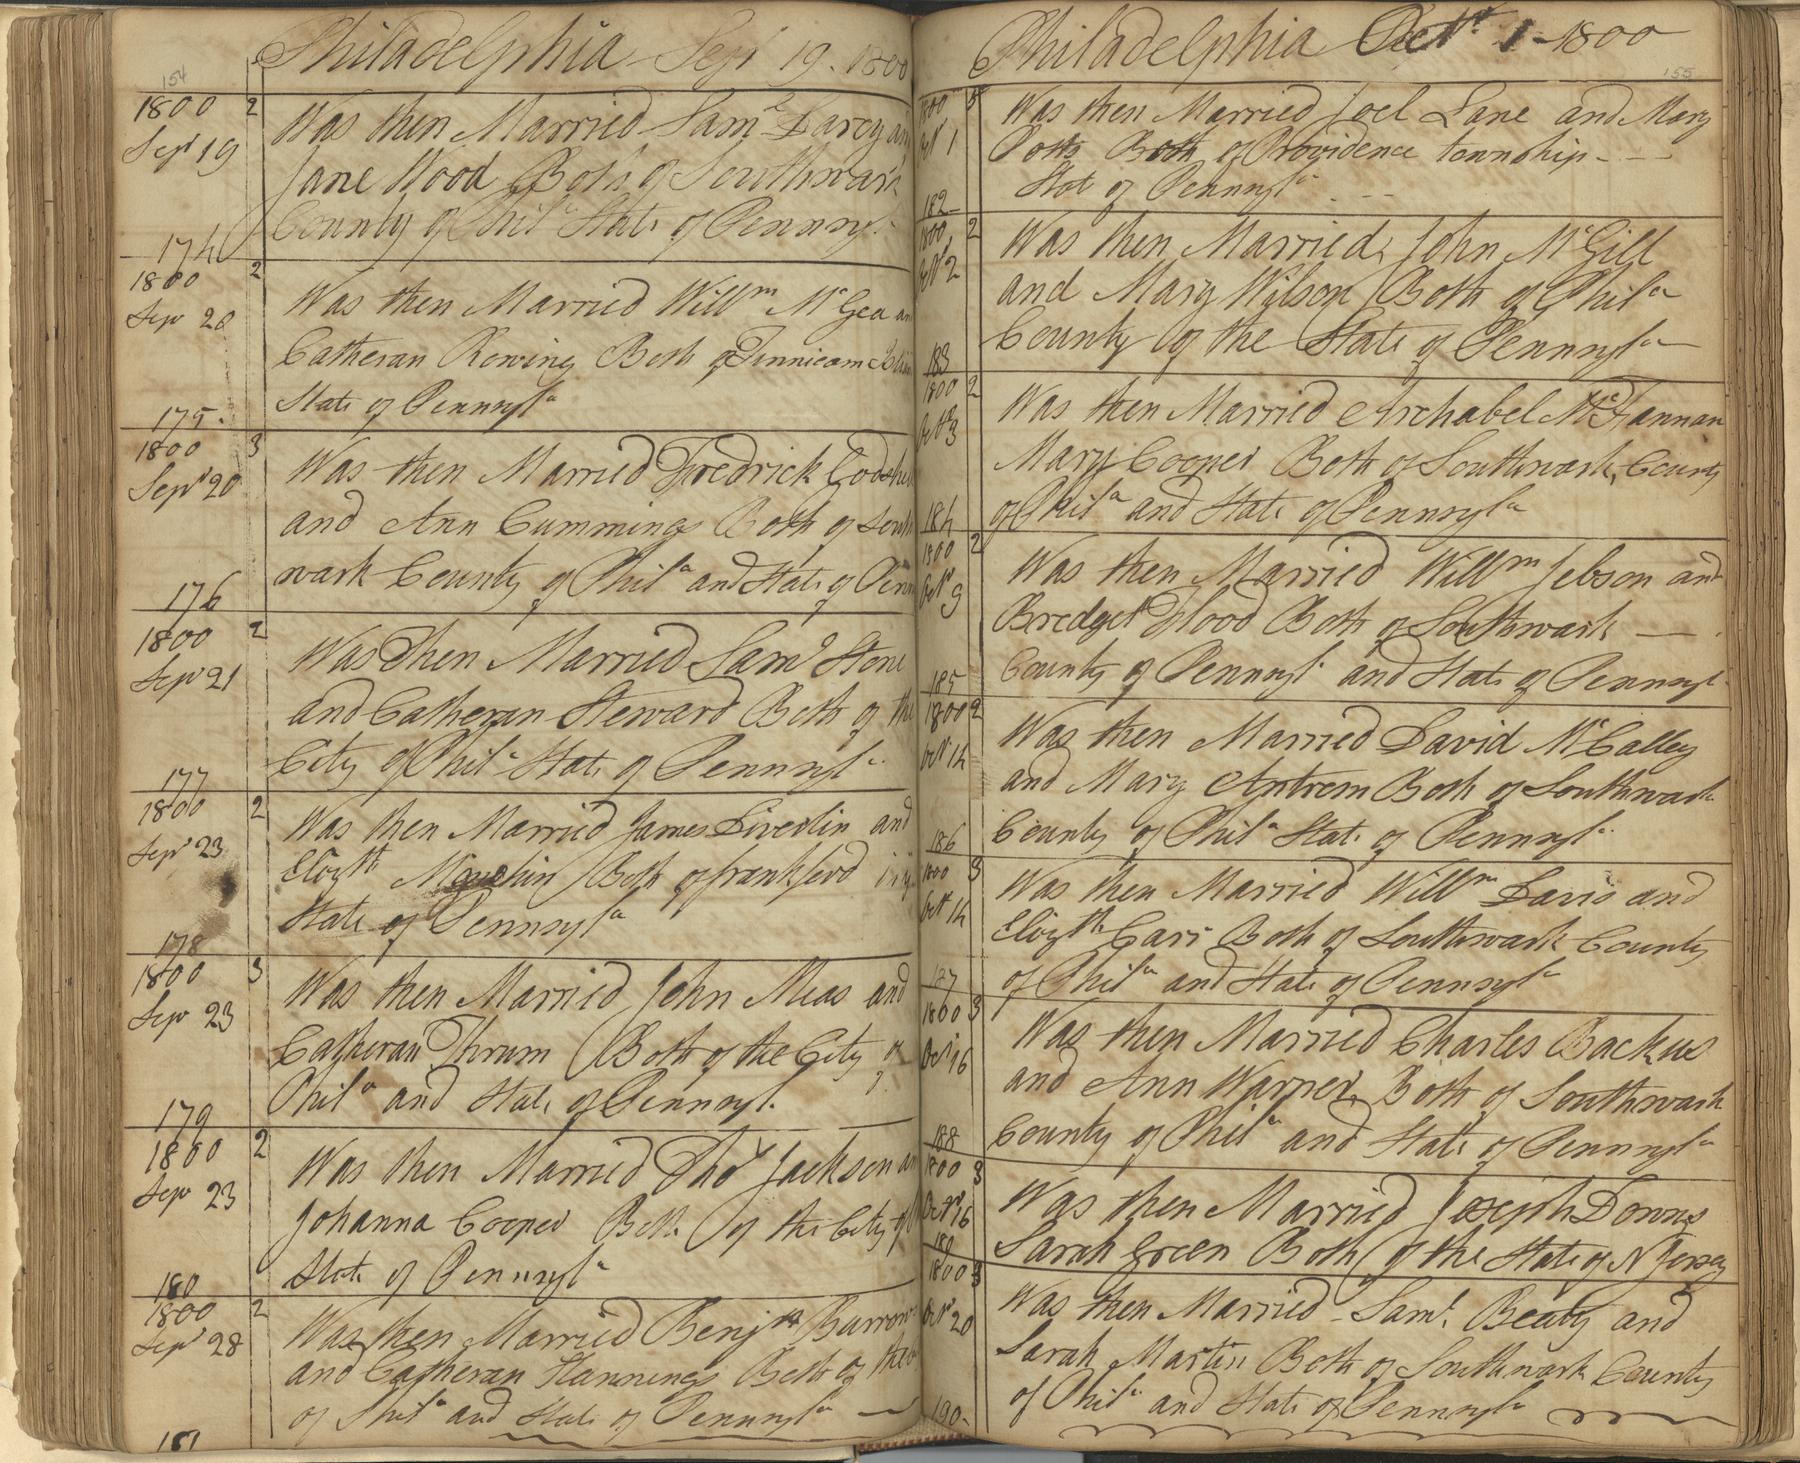 Philadelphia Sept 19. 1800
154
1800 2 Was then Married Sam.l Darcy an
Sept 19 Jane Wood Both of Southwark
County of Phil.a State of Pennsyl.a
174
1800 2 Was then Married Will.m McGea an
Sep.r 20 Catheran Rowing Both of Tinnicam
State of Pennsyl.a
175.
1800 3 Was then Married Fredrick
Sep.r 20 and Ann Cummings Both of South
wark County of Phil.a and State of Penn
176
1800 2 Was Then Married Sam.l Stone
Sep.r 21 and Catheran Steward Both of the
City of Phil.a State of Pennsyl.a
177
1800 2 Was then Married James Liverlin and
Sep.r 23 Eliz.th Both of frankford
State of Pennsyl.a
178
1800 3 Was then Married John Meas and
Sep.r 23 Catheran Thrum Both of the City of
Phil.a and State of Pennsyl.
179
1800 2 Was then Married Tho.s Jackson an
Sep.r 23 Johanna Cooper Both of the City of
State of Pennsyl.a
180
1800 2 Was then Married Benj.n Burrow
Sep.r 28 and Catheran Hannings Both of the
of Phil.a and State of Pennsyl.a
181
Philadelphia Oct.r 1 - 1800
155
1800 Was then Married Joel Lane and Mary
Oct.r 1 Potts Both of Providence township
Stat of Pennsyl.a
182
1800 2 Was then Married John McGill
Oct.r 2 and Mary Wilson Both of Phil.a
County of the State of Pennsyl.a
183
1800 2 Was then Married Archabel
Oct.r 3 Mary Cooper Both of Southwark, County
of Phil.a and State of Pennsyl.a
184
1800 2 Was then Married Will.m Jebson and
Oct.r 9 Bredget Flood Both of Southwark
County of Pennsyl.a and State of Pennsyl.
185
1800 2 Was then Married David McCalley
Oct.r 14 and Mary Antrem Both of Southwark
County of Phil.a State of Pennsyl.a
186
1800 3 Was then Married Will.m Davis and
Oct.r 14 Eliz.th Carr Both of Southwark County
of Phil.a and State of Pennsyl.a
187
1800 3 Was then Married Charles Backus
Oct.r 16 and Ann Warner Both of Southwark
County of Phil.a and State of Pennsyl.a
188
1800 3 Was then Married Joseph Downs
Oct.r 16 Sarah Green Both of the State of N Jersey
189
1800 3 Was then Married Sam.l Beaty and
Oct.r 20 Sarah Martin Both of Southwark County
of Phil.a and State of Pennsyl.a
190